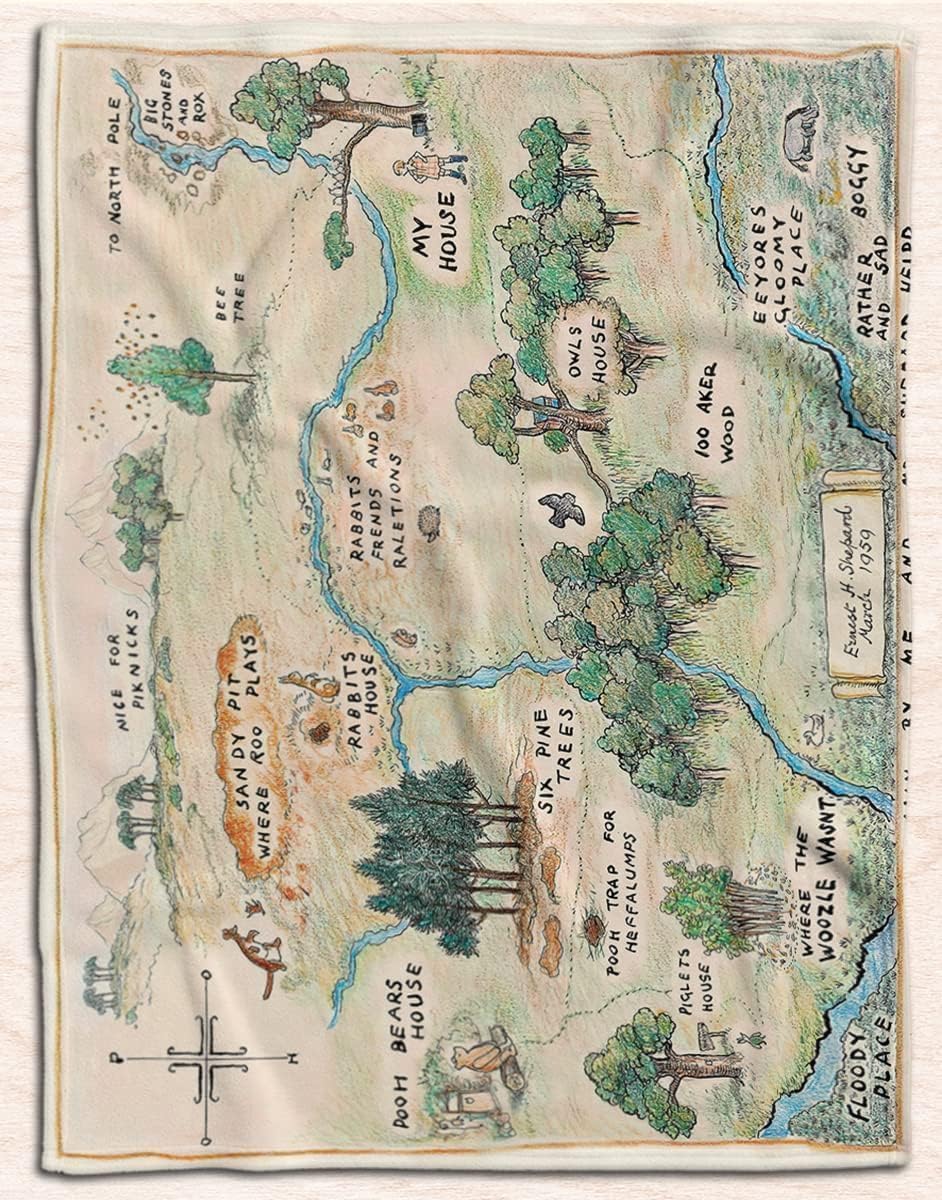 P
O O
H
NICE FOR
PIKNICKS
BIG
STONES
AND
ROX
TO NORTH POLE
BEE
TREE
SANDY PIT
WHERE ROO PLAYS
RABBITS
HOUSE
RABBITS
FRENDS AND
RALETIONS
MY
HOUSE
POOH BEARS
HOUSE
SIX PINE
TREES
OWLS
HOUSE
POOH TRAP FOR
HEFFALUMPS
PIGLETS
HOUSE
100 AKER
WOOD
EEYORES
GLOOMY
PLACE
WHERE THE
WOOZLE WASNT
RATHER BOGGY
AND SAD
FLOODY
PLACE
Ernest H. Shepard
March 1959
BY ME AND MR SHEPARD HELPD